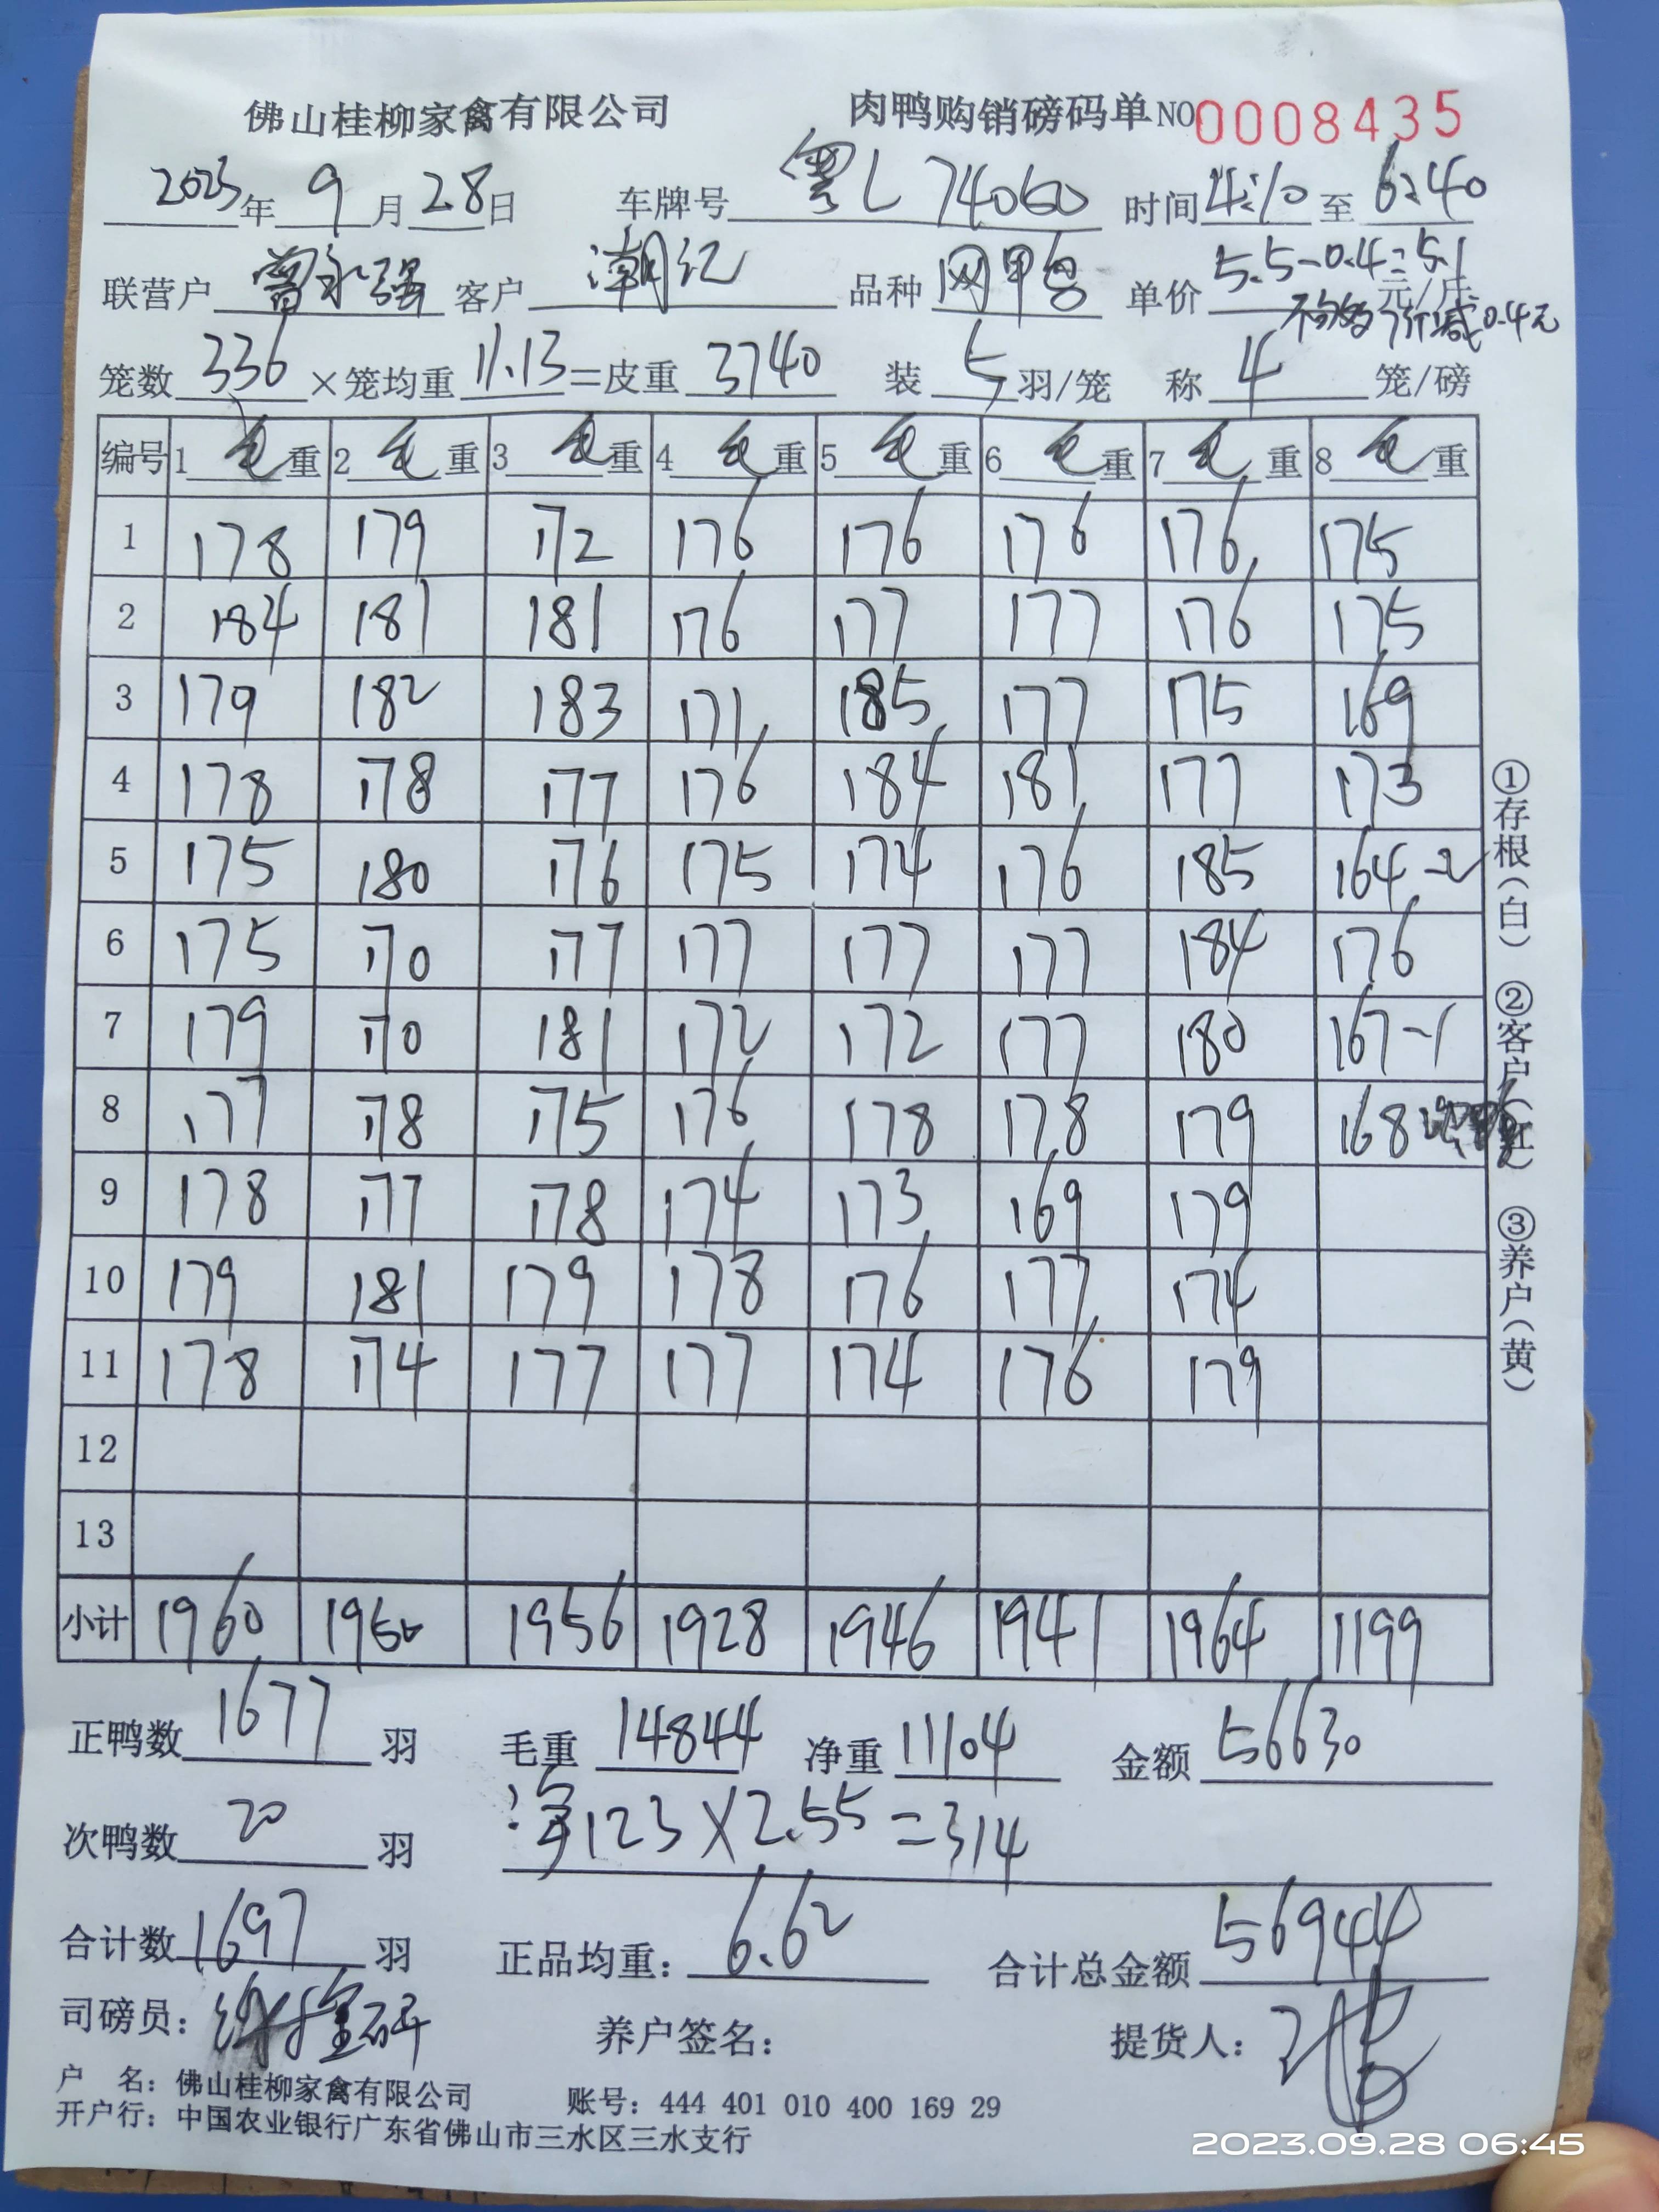 佛山桂柳家禽有限公司 肉鸭购销磅码单 NO 0008435
2023年 9月 28日 车牌号 粤L 74060 时间 4:10 至 6:40
联营户 曾永强 客户 潮记 品种 网甲 单价 5.5-0.4=5.1 元/斤
减0.4元
笼数 336 ×笼均重 11.13 =皮重 3740 装 5 羽/笼 称 4 笼/磅
编号 1 毛重 2 毛重 3 毛重 4 毛重 5 毛重 6 毛重 7 毛重 8 毛重
1 178 179 172 176 176 176 176 175
2 184 181 181 176 177 177 176 175
3 179 182 183 171 185 177 175 169
4 178 178 177 176 184 181 177 173
5 175 180 176 175 174 176 185 164-2
6 175 170 177 177 177 177 184 176
7 179 170 181 172 172 177 180 167-1
8 177 178 175 176 178 178 179 168
9 178 177 178 174 173 169 179
10 179 181 179 178 176 177 174
11 178 174 177 177 174 176 179
12
13
小计 1960 1950 1956 1928 1946 1941 1964 1199
①存根(白) ②客户(红) ③养户(黄)
正鸭数 1677 羽 毛重 14844 净重 11104 金额 56630
次鸭数 20 羽 净123×2.55=314
合计数 1697 羽 正品均重: 6.62 合计总金额 56944
司磅员: 养户签名: 提货人:
户 名: 佛山桂柳家禽有限公司 账号: 444 401 010 400 169 29
开户行: 中国农业银行广东省佛山市三水区三水支行
2023.09.28 06:45